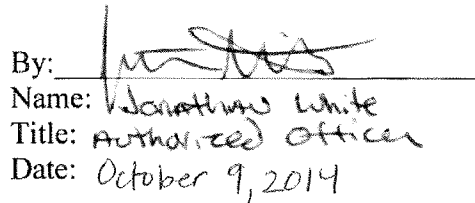 By:
Name: Jonathan White
Title: Authorized Officer
Date: October 9, 2014